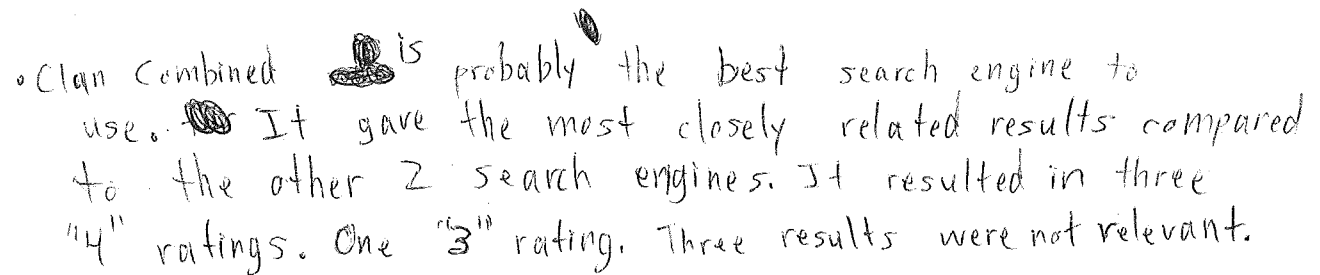 • Clan Combined is probably the best search engine to
use. It gave the most closely related results compared
to the other 2 search engines. It resulted in three
"4" ratings. One "3" rating. Three results were not relevant.